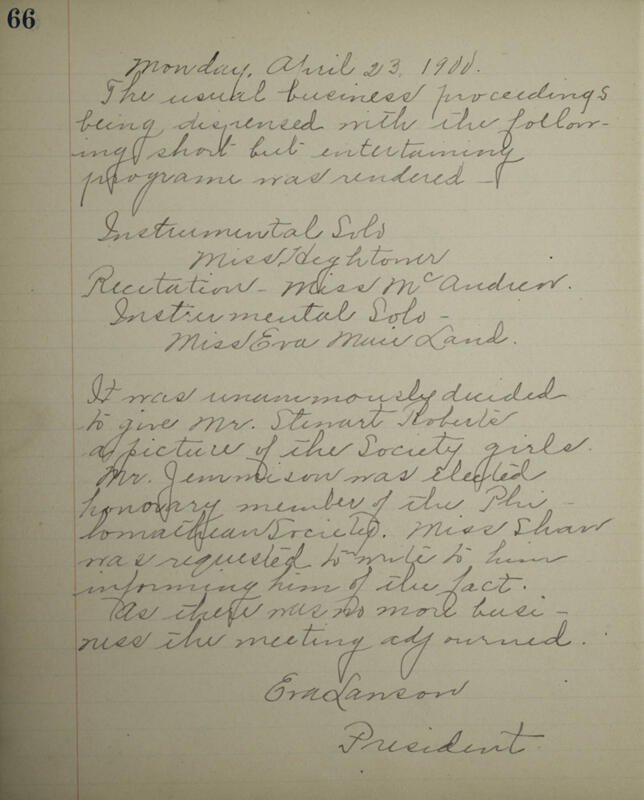 66
Monday, April 23, 1900.
The usual business proceedings
being dispensed with the follow-
ing short but entertaining
programe was rendered -
Instrumental Solo
Miss Hightower
Recitation - Miss McAndrew.
Instrumental Solo -
Miss Eva Mair Land.
It was unanimously decided
to give Mr. Stewart Roberts
a picture of the Society girls.
Mr. Jemmison was elected
honorary member of the Phi-
lomathean Society. Miss Shaw
was requested to write to him
informing him of the fact.
As there was no more busi-
ness the meeting adjourned.
Eva Lanson
President